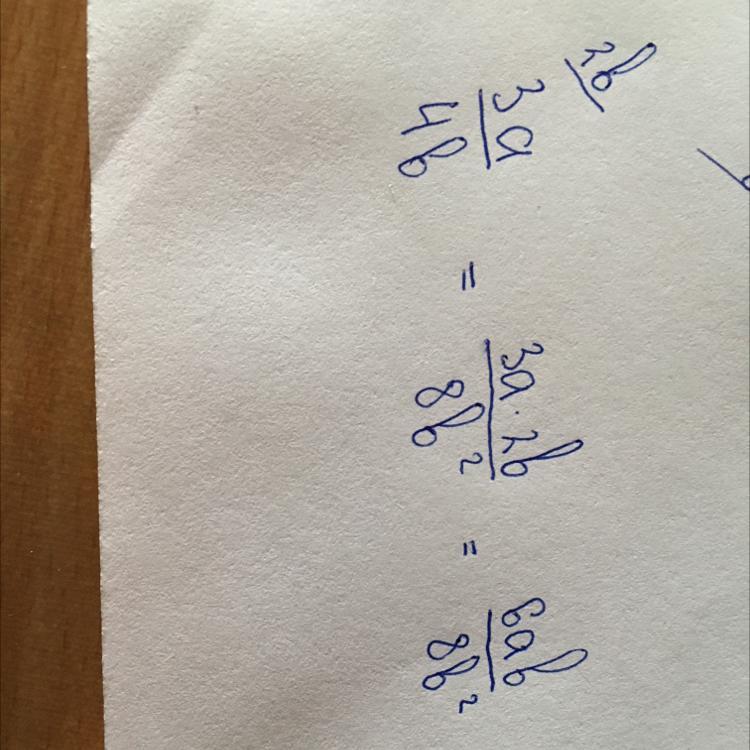 2b/
3a/4b = 3a·2b/8b² = 6ab/8b²